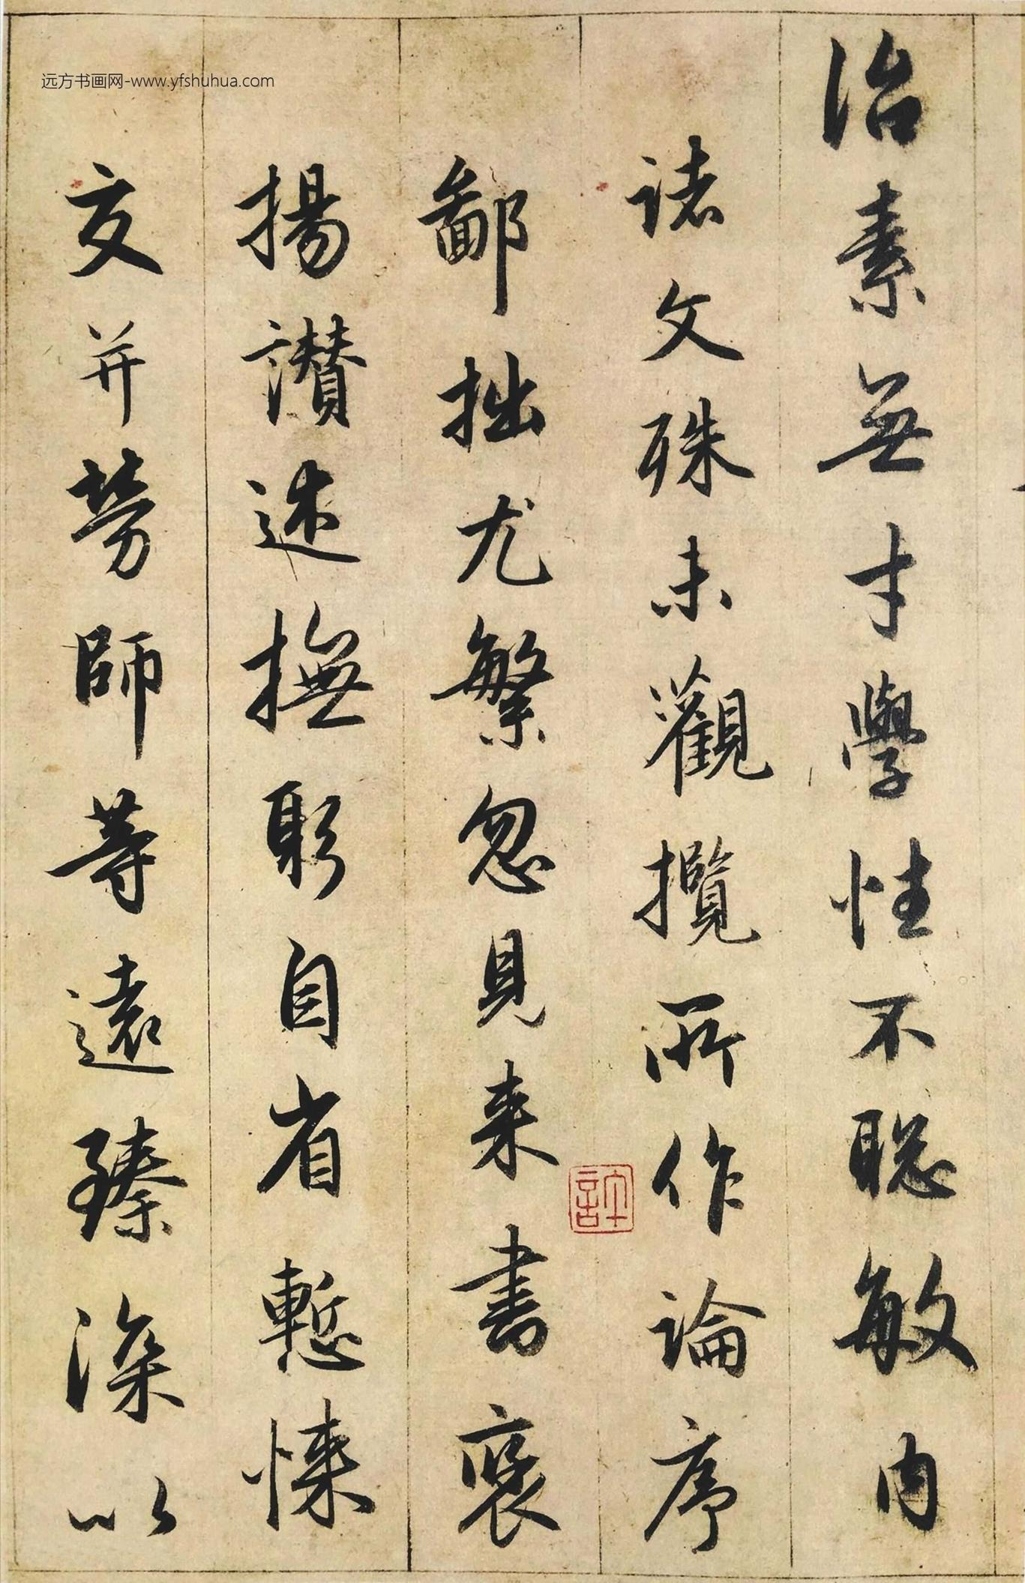 远方书画网-www.yfshuhua.com
治素無才學性不聰敏内
諸文殊未觀攬所作論序
鄙拙尤繁忽見来書褒
揚讚述撫躬自省慙悚
交并勞師等遠臻深以